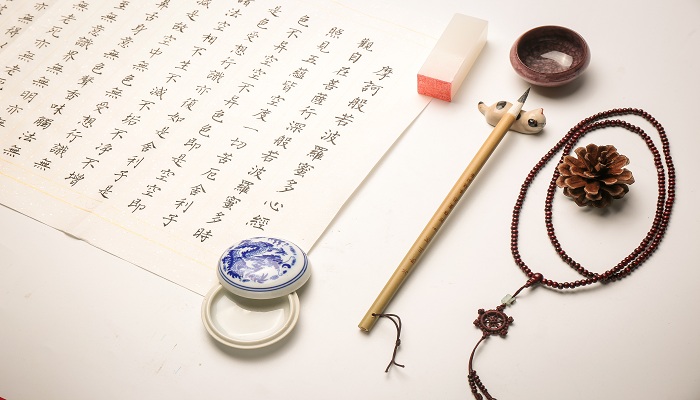 摩訶般若波羅蜜多心經
觀自在菩薩行深般若波羅蜜多時
照見五蘊皆空度一切苦厄舍利子
色不异空空不异色色即是空空即
是色受想行識亦復如是舍利子是
法空相不生不滅不垢不淨不增
是故空中無色無受想行識無
舌身意無色聲香味觸法無